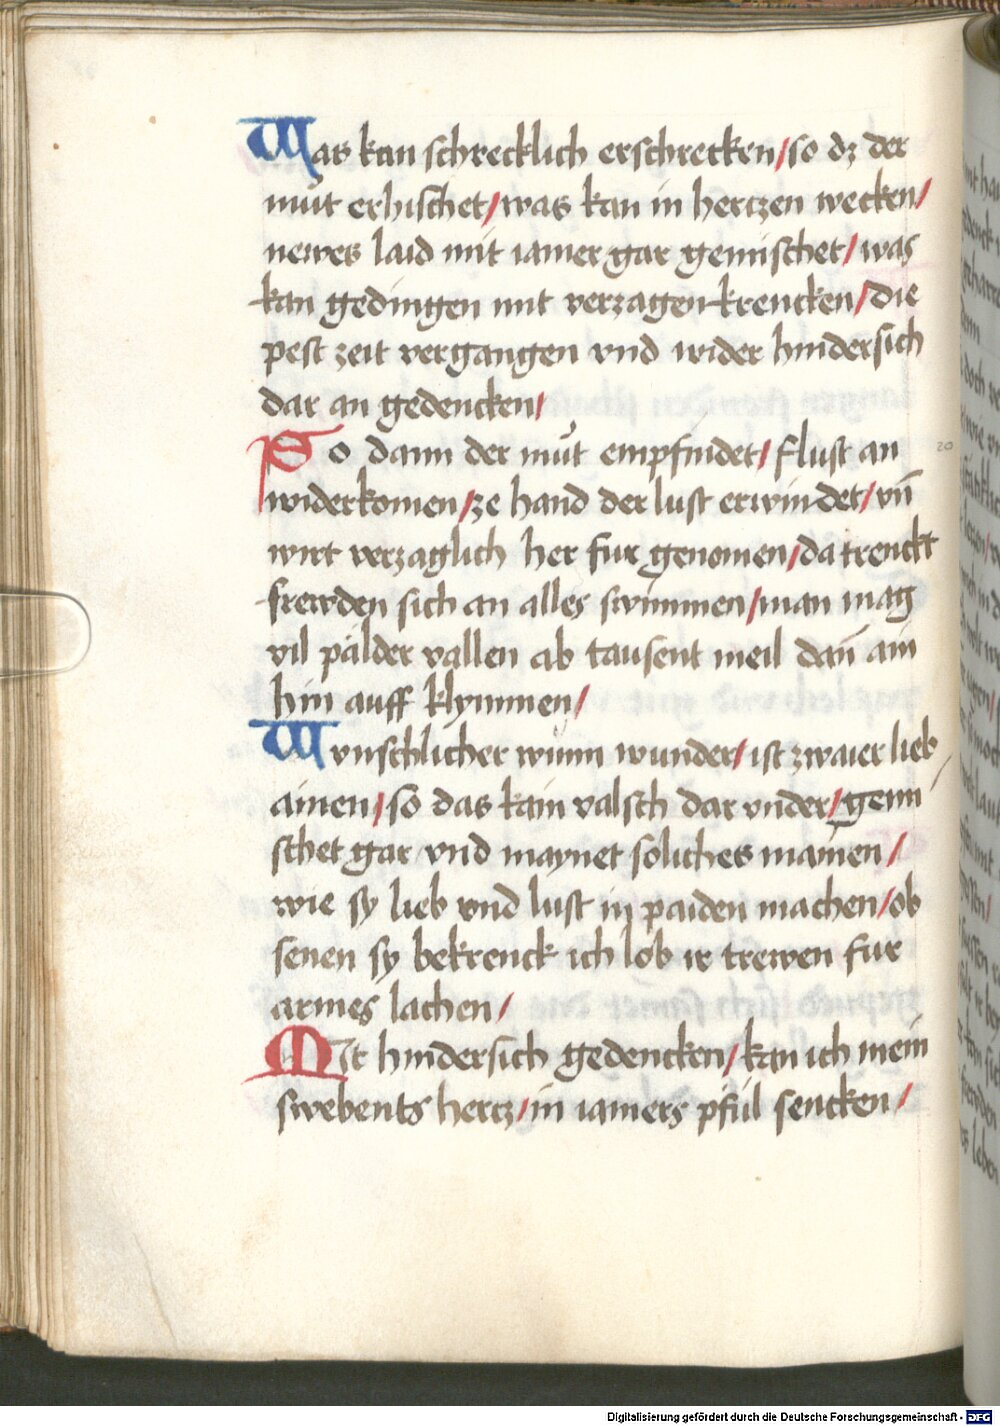 Was kan schrecklich erschrecken/so dz der
mut erhischet/was kan in hertzen wecken/
newes laid mit iamer gar gemischet/was
kan gedingen mit verzagen krencken/die
pest zeit vergangen vnd wider hindersich
dar an gedencken/
So dann der mut empfindet/flust an
widerkomen/ze hand der lust erwindet/vn̄
wirt verzaglich her fur genomen/da trenckt
frewden sich an alles swimmen/man mag
vil pälder vallen ab tausent meil dan̄ ain
hin auff klymmen/
Wunschlicher wunn wunder/ist zwaier lieb
ainen/so das kain valsch dar vnder/gemi
schet gar vnd maynet soliches mainen/
wie sy lieb vnd lust in paiden machen/ob
senen sy bekrenck ich lob ir trewen fur
armes lachen/
Mit hindersich gedencken/kan ich mein
swebents hertz/in iamers pful sencken/
20
Digitalisierung gefördert durch die Deutsche Forschungsgemeinschaft - DFG